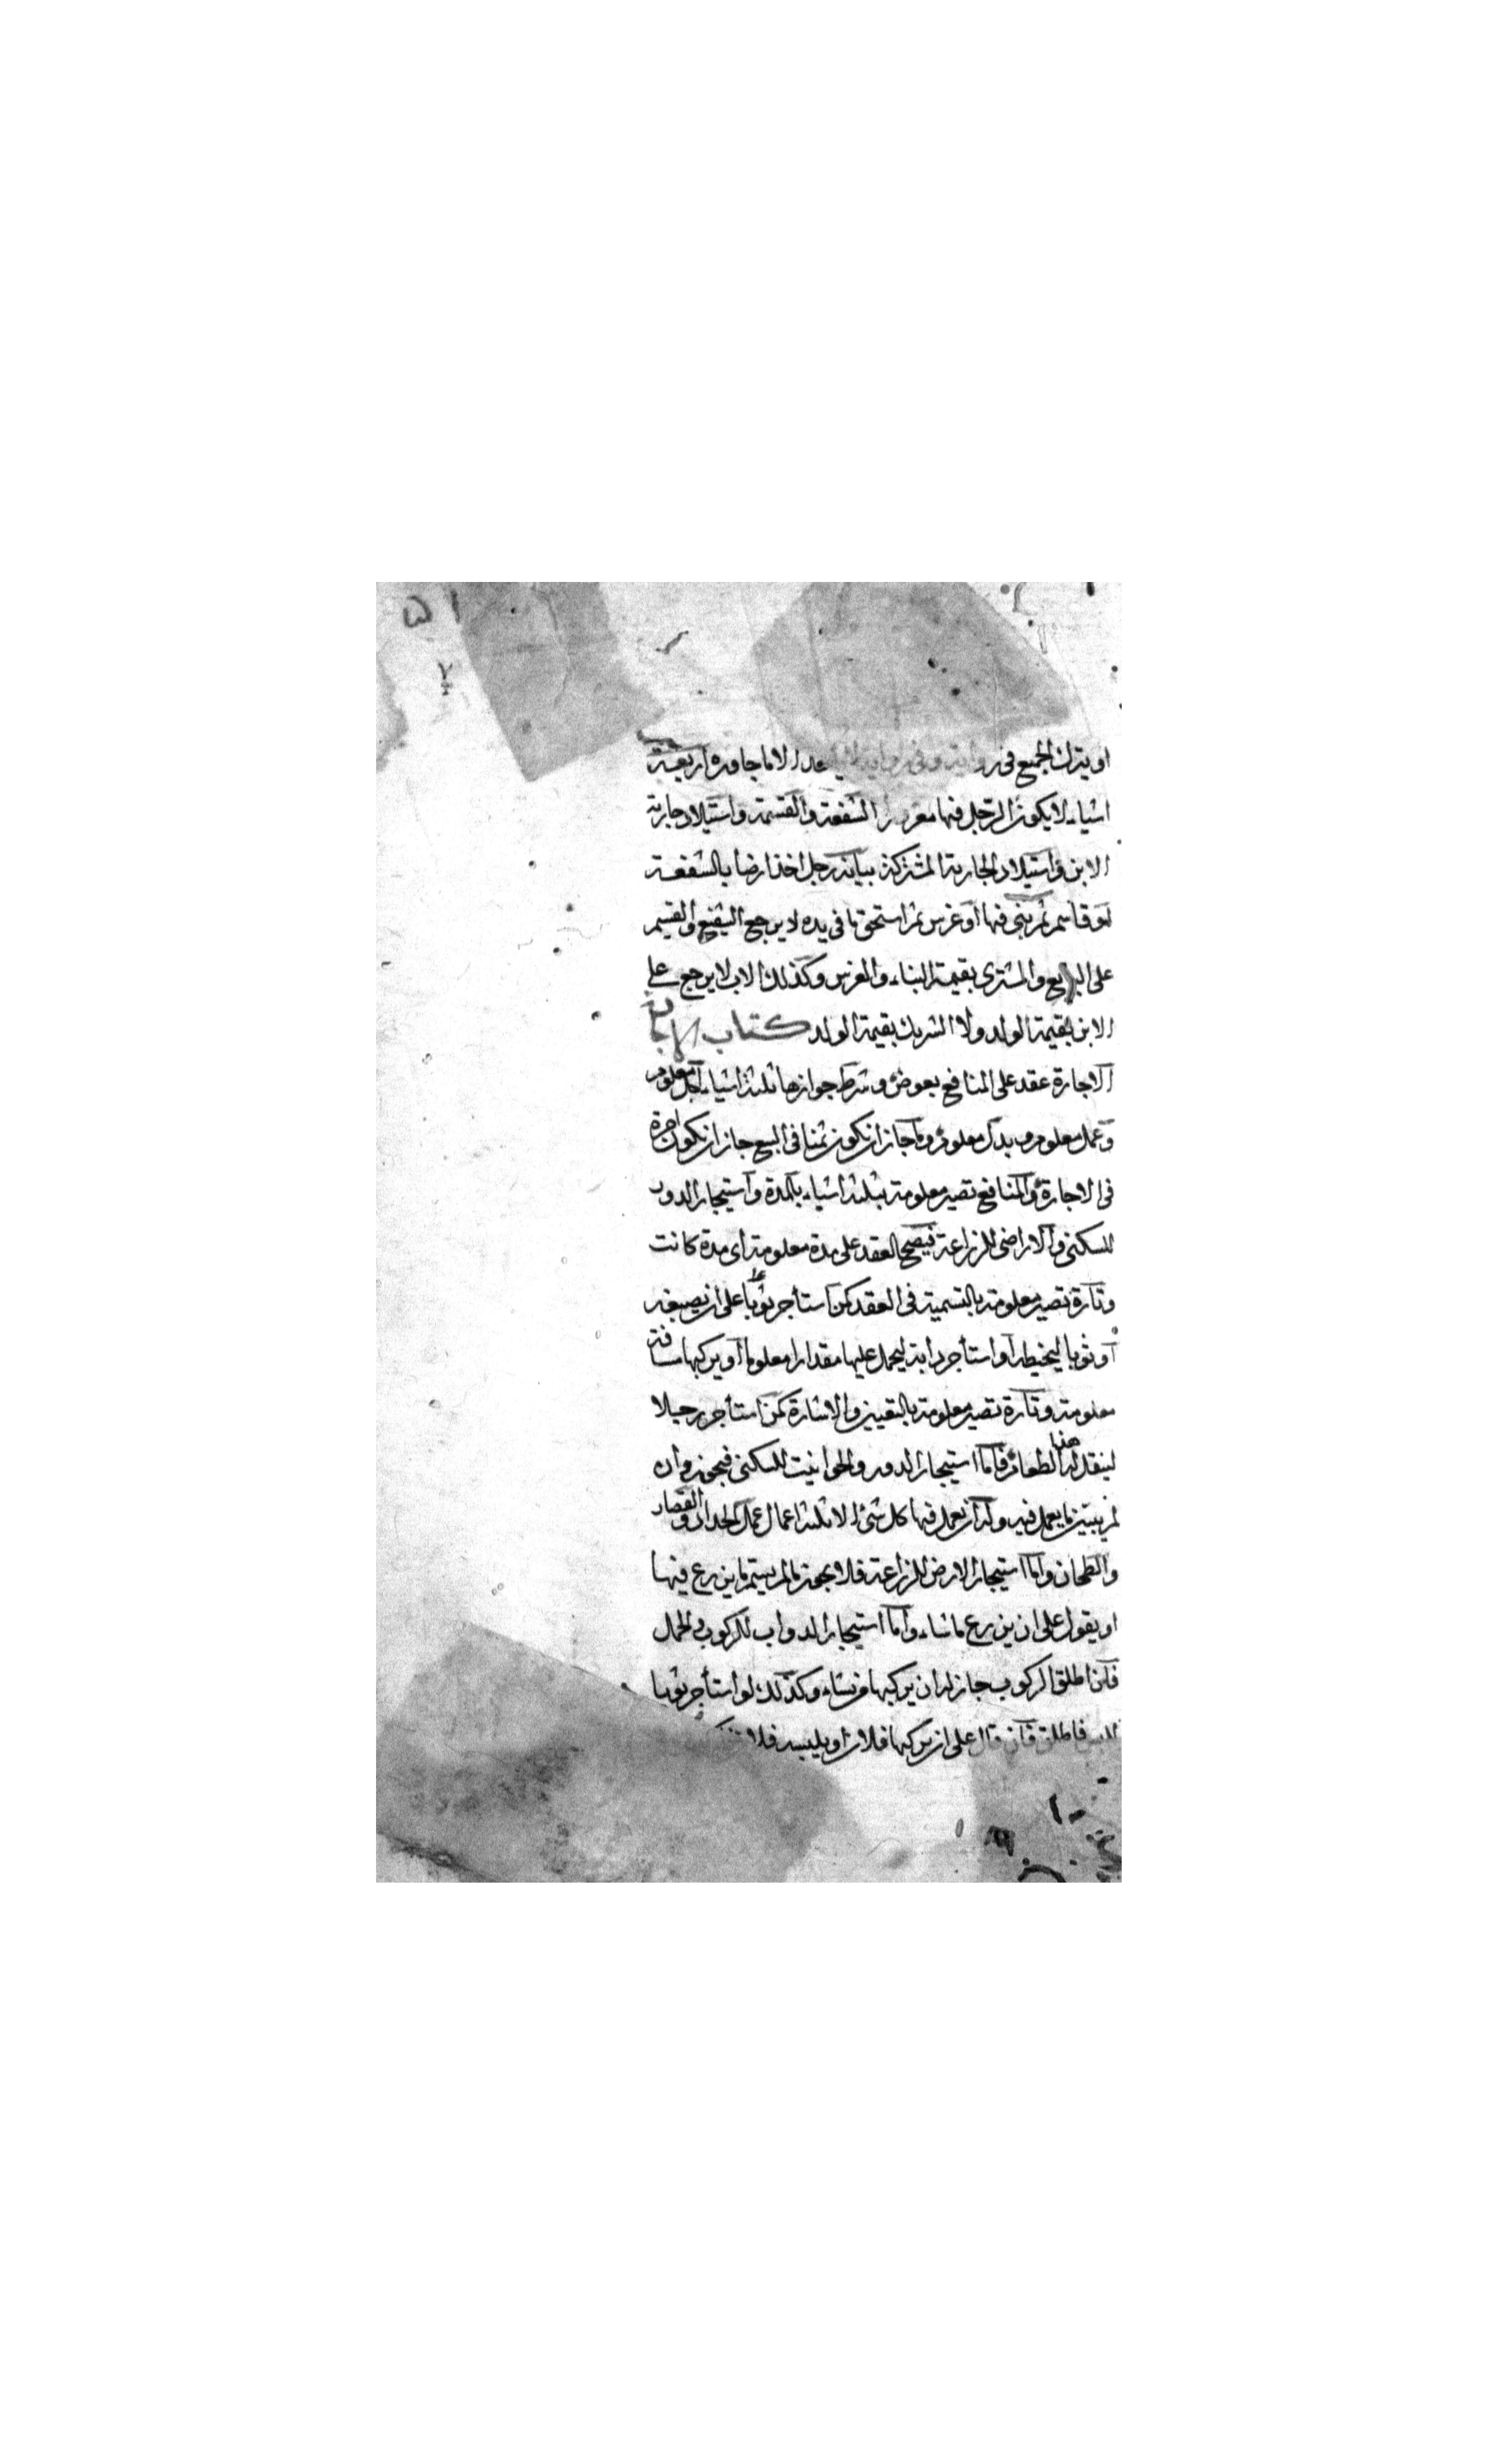 ٥١
او يترك الجميع في رواية وفي رواية الا ما جاوره اربعة
اشياء لا يكون الرجل فيها مغرورا الشفعة والقسمة واستيلاد جارية
الابن واستيلاد الجارية المشتركة بيانه رجل اخذ ارضا بالشفعة
او قاسم ثم بنى فيها او غرس ثم استحق ما في يده لا يرجع الشفيع والقسيم
على البايع والمشترى بقيمة البناء والغرس وكذلك الاب لا يرجع على
الابن بقيمة الولد ولا الشريك بقيمة الولد كتاب الاجارة
الاجارة عقد على المنافع بعوض وشرط جوازها ثلثة اشياء اجل معلوم
وعمل معلوم وبدل معلوم وما جاز ان يكون ثمنا في البيع جاز ان يكون اجرة
في الاجارة والمنافع تصير معلومة بثلثة اشياء بالمدة واستيجار الدور
للسكنى والاراضى للزراعة فيصح العقد على مدة معلومة اى مدة كانت
وتارة تصير معلومة بالتسمية في العقد كمن استأجر ثوبا على ان يصبغه
او ثوبا ليخيطه او استأجر دابة ليحمل عليها مقدارا معلوما او يركبها مسافة
معلومة وتارة تصير معلومة بالتعيين والاشارة كمن استأجر رجلا
لينقل له هذا الطعام فاما استيجار الدور والحوانيت للسكنى فيجوز وان
لم يبين ما يعمل فيه وله ان يعمل فيها كل شئ الا ثلثة اعمال عمل الحداد والقصار
والطحان واما استيجار الارض للزراعة فلا يجوز ما لم يسم ما يزرع فيها
او يقول على ان يزرع ما شاء واما استيجار الدواب للركوب والحمل
فان اطلق الركوب جاز له ان يركبها من شاء وكذلك لو استأجر ثوبا
للبس فاطلق فان قال على ان يركبها فلان او يلبسه فلان